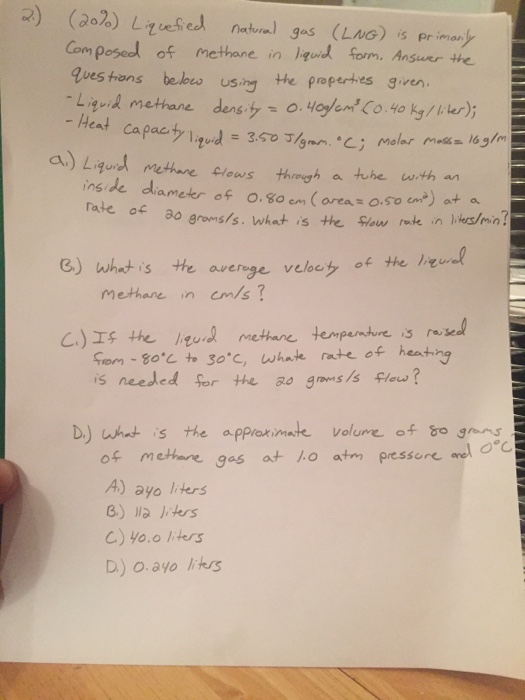 2) (20%) Liquefied natural gas (LNG) is primarily
Composed of methane in liquid form. Answer the
questions below using the properties given.
- Liquid methane density = 0.40g/cm³ (0.40 kg/liter);
- Heat capacity liquid = 3.50 J/gram.°C; molar mass = 16g/m
a.) Liquid methane flows through a tube with an
inside diameter of 0.80 cm (area = 0.50 cm²) at a
rate of 20 grams/s. What is the flow rate in liters/min?
B.) What is the average velocity of the liquid
methane in cm/s?
C.) If the liquid methane temperature is raised
from -80°C to 30°C, whate rate of heating
is needed for the 20 grams/s flow?
D.) What is the approximate volume of 80 grams
of methane gas at 1.0 atm pressure and 0°C
A.) 240 liters
B.) 112 liters
C.) 40.0 liters
D.) 0.240 liters